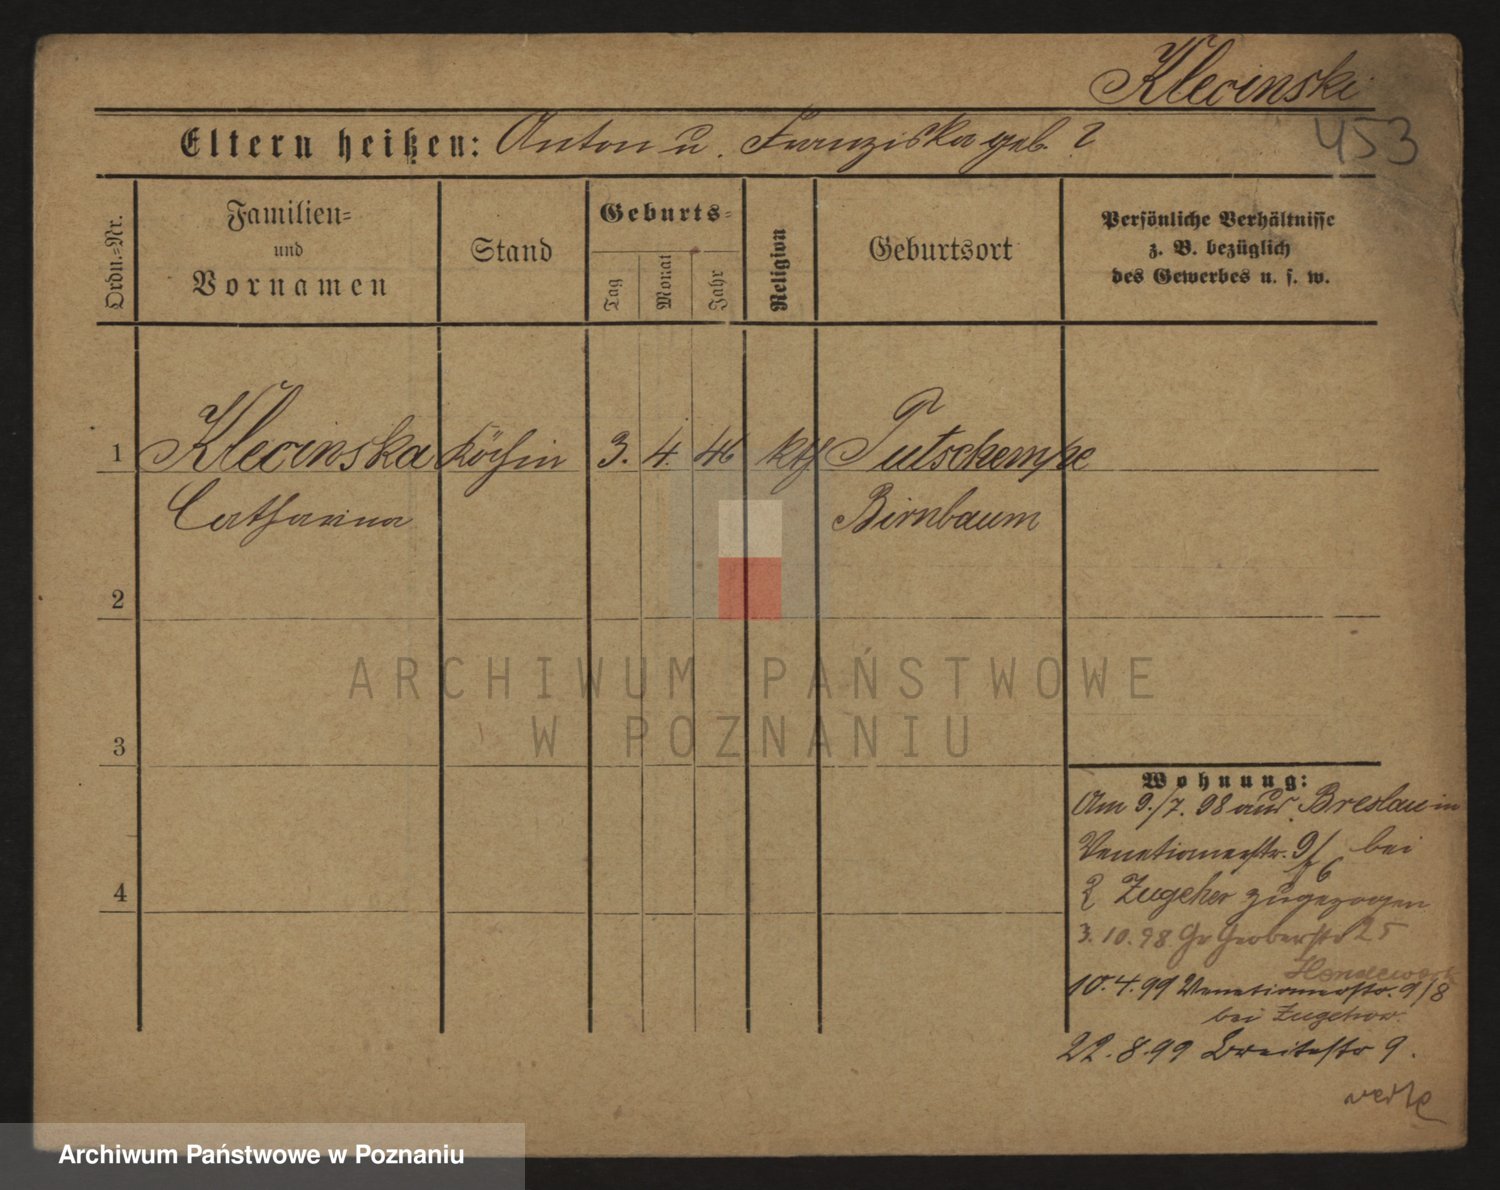 Klecinski
453
Eltern heißen: Anton u. Franziska geb. ?
Ordn.-Nr.
Familien-
und
Vornamen
Stand
Geburts-
Tag
Monat
Jahr
Religion
Geburtsort
Persönliche Verhältnisse
z. B. bezüglich
des Gewerbes u. s. w.
1 Klecinska Köchin 3. 4. 46 kth Tutschempe
Catharina Birnbaum
2
3
4
Wohnung:
Am 9./7. 98 aus Breslau in
Venetianerstr. 9/6 bei
Zugehör zugezogen
3. 10. 98 Gr Gerberstr 25
10. 4. 99 Venetianerstr. 9/8
bei
22. 8. 99 Breitestr 9.
ARCHIWUM PAŃSTWOWE
W POZNANIU
Archiwum Państwowe w Poznaniu